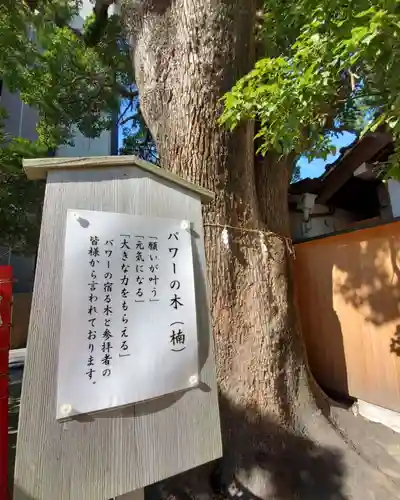 パワーの木（楠）
「願いが叶う」
「元気になる」
「大きな力をもらえる」
パワーの宿る木と参拝者の
皆様から言われております。